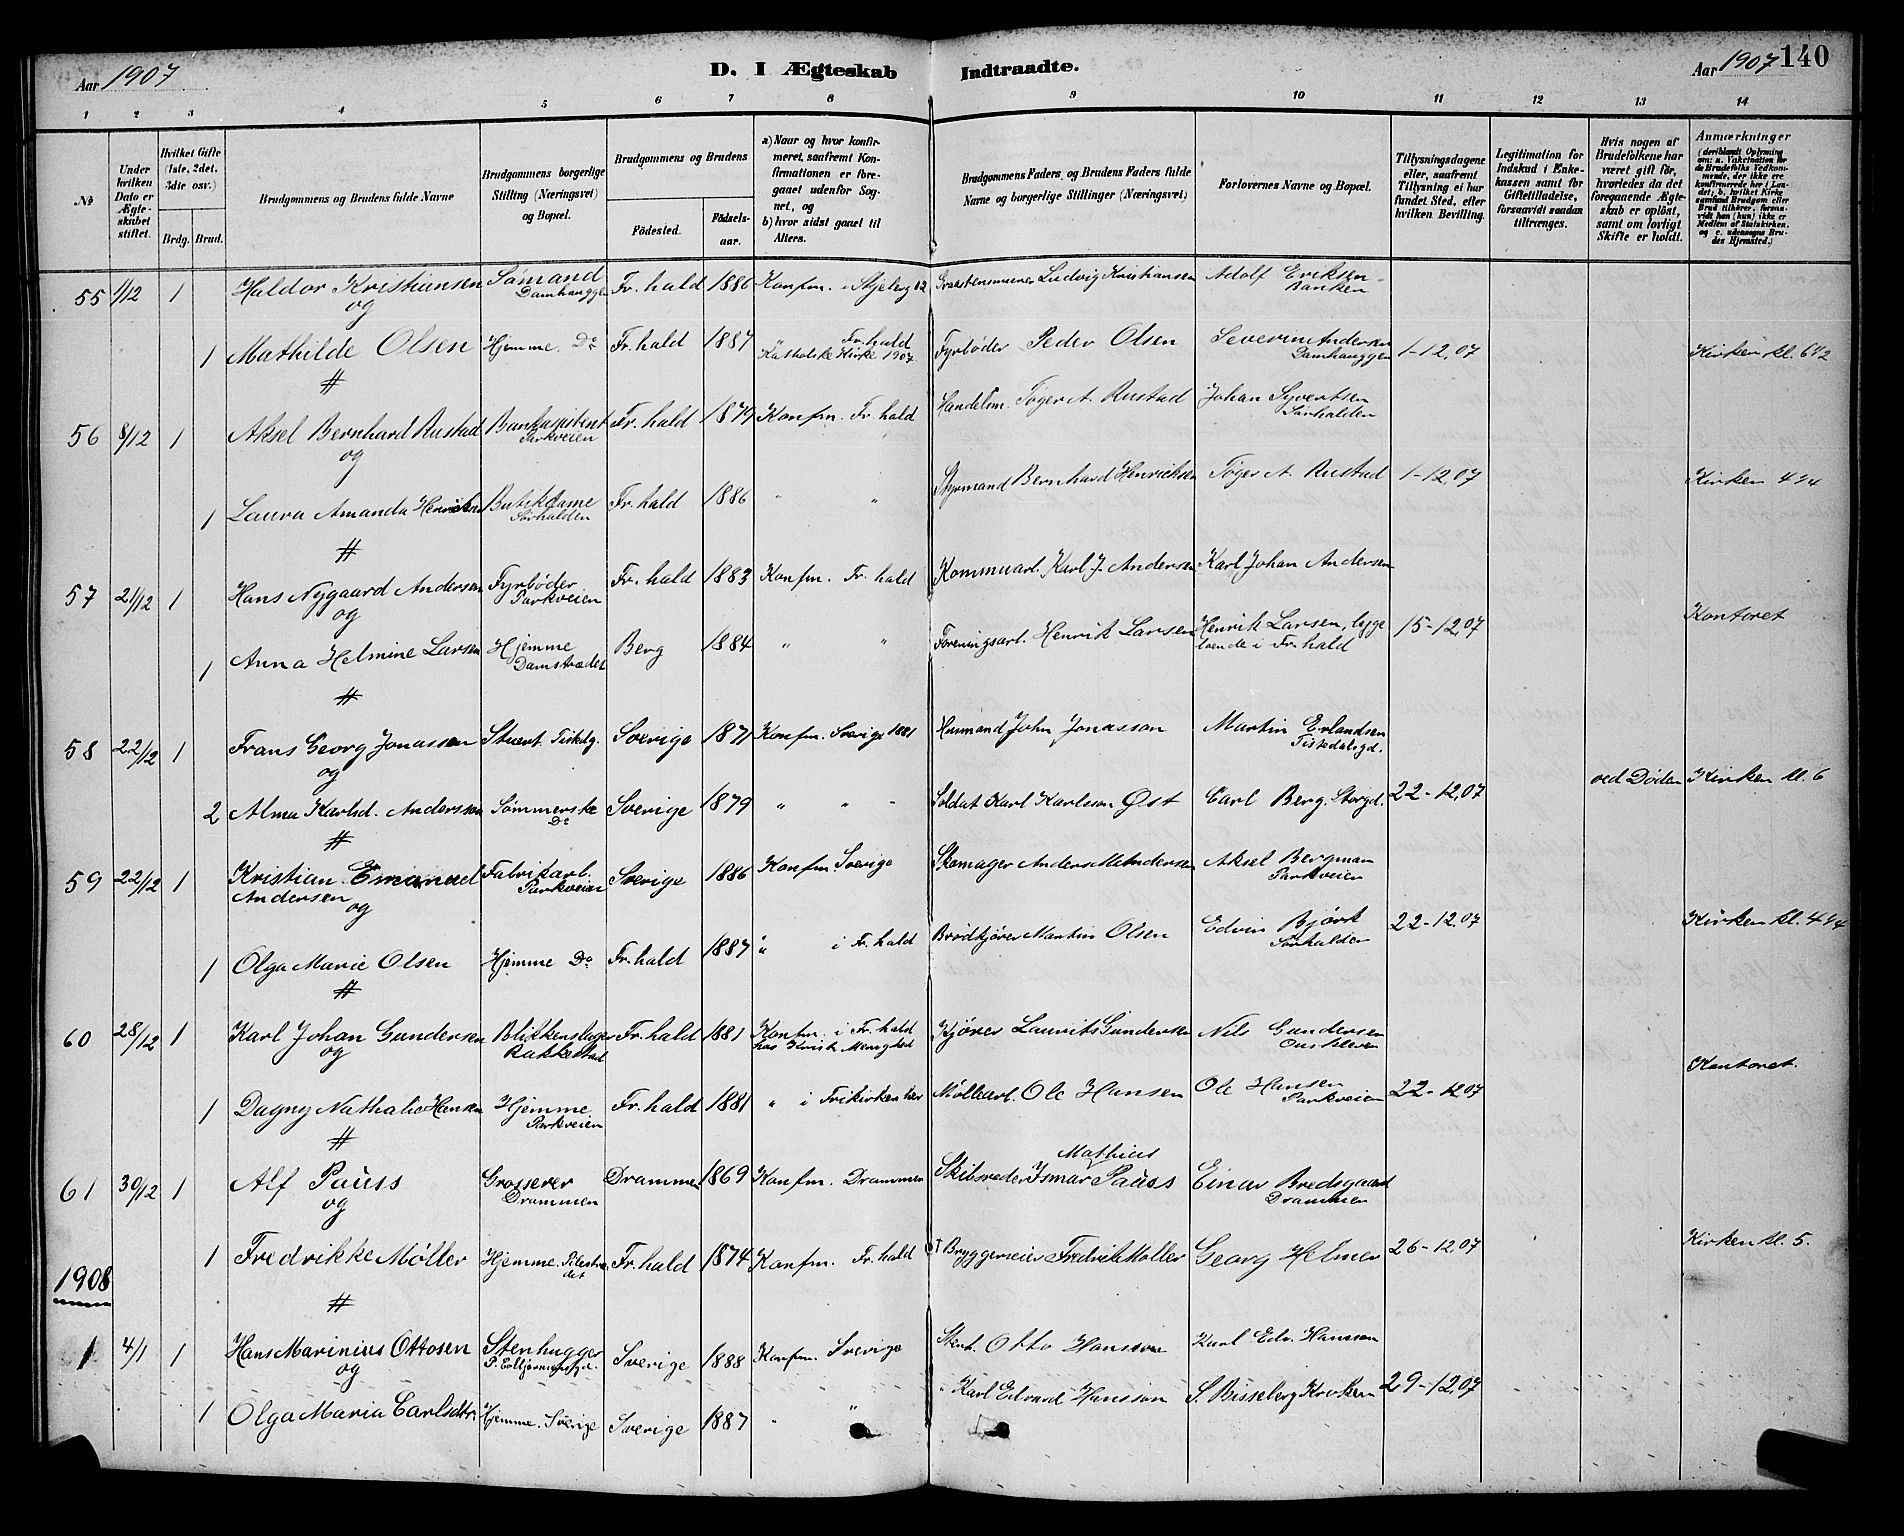 Aar 1907
D. I Ægteskab Indtraadte.
Aar 1907 140
1 2 3 4 5 6 7 8 9 10 11 12 13 14
No
Under hvilken Dato er Ægteskabet stiftet.
Hvilket Gifte (1ste, 2det, 3die osv.)
Brdg. Brud.
Brudgommens og Brudens fulde Navne
Brudgommens borgerlige Stilling (Næringsvei) og Bopæl.
Brudgommens og Brudens
Fødested.
Fødselsaar.
a) Naar og hvor konfirmeret, saafremt Konfirmationen er foregaaet udenfor Sognet, og
b) hvor sidst gaaet til Alters.
Brudgommens Faders, og Brudens Faders fulde Navne og borgerlige Stillinger (Næringsvei)
Forlovernes Navne og Bopæl.
Tillysningsdagene eller, saafremt Tillysning ei har fundet Sted, efter hvilken Bevilling.
Legitimation for Indskud i Enkekassen samt for Giftetilladelse, forsaavidt saadan tiltrænges.
Hvis nogen af Brudefolkene har været gift før, hvorledes da det foregaaende Ægteskab er opløst, samt om lovligt Skifte er holdt.
Anmærkninger
(deriblandt Oplysning om: a. Vakcination for de Brudefolks Vedkommende, der ikke ere konfirmerede her i Landet; b. hvilket Kirkesamfund Brudgom eller Brud tilhører, forsaavidt han (hun) ikke er Medlem af Statskirken, og c. udensogns Brudes Hjemsted.)
55 1/12 1 Haldor Kristiansen Sømand Fr.hald 1886 Konfm. i Skjeberg 12 Ludvig Kristiansen Adolf Eriksen
og Damhaugge Banken
1 Mathilde Olsen Hjemme Do Fr.hald 1887 Fr.hald Katholske Kirke 1907 Fyrbøder Peder Olsen Severin Andersen 1-12,07 Kirken kl. 6 1/2
# Damhauggen
56 8/12 1 Aksel Bernhard Rustad Bankassistent Fr.hald 1879 Konfm. Fr.hald Handelsm. Tøger A. Rustad Johan Syvertsen
og Parkveien Sørhalden
1 Laura Amanda Henriksen Butikdame Fr.hald 1886 " " Styrmand Bernhard Henriksen Tøger A. Rustad 1-12,07 Kirken 4 1/4
# Sørhalden
57 21/12 1 Hans Nygaard Andersen Fyrbøder Fr.hald 1883 Konfm. Fr.hald Kommuarb. Karl J. Andersen Karl Johan Andersen
og Parkveien
1 Anna Helmine Larsen Hjemme Berg 1884 " " Foreningsarb. Henrik Larsen Henrik Larsen, begge 15-12,07 Kontoret
# Damstrædet boende i Fr.hald
58 22/12 1 Frans Georg Jonassen Stuert. Tistedg. Sverige 1871 Konfm. Sverige 1881 Husmand John Jonasson Martin Erlandsen
og Tistedalsgd.
2 Alma Karlsd. Anderssen Sømmerske Sverige 1879 " " " Soldat Karl Karlsson Øst Carl Berg. Storgd. 22-12,07 ved Døden Kirken kl. 6
# Do
59 22/12 1 Kristian Emanuel Fabrikarb. Sverige 1886 Konfm. Sverige Skomager Anders M. Andersen Aksel Bergman
Andersen Parkveien Parkveien
og
1 Olga Marie Olsen Hjemme Do Fr.hald 1887 " i Fr.hald Brødkjører Martin Olsen Edvin Bjørk 22-12,07 Kirken kl. 4 1/4
# Sørhalden
60 28/12 1 Karl Johan Gundersen Blikkenslager Fr.hald 1881 Konfm. i Fr.hald Kjører Laurits Gundersen Nils Gundersen
og Rakkestad hos Krist. Menighed
1 Dagny Nathalie Hansen Hjemme Fr.hald 1881 " i Frikirken her Møllearb. Ole Hansen Ole Hansen 22-12,07 Kontoret.
# Parkveien Parkveien
61 30/12 1 Alf Pauss Grosserer Drammen 1869 Konfm. Drammen Skibsreder Ismar Mathias Pauss Einar Bredsgaard
og Drammen Drammen
1 Fredrikke Møller Hjemme. Pilestrædet Fr.hald 1874 Konfm. Fr.hald Bryggerieier Fredrik Møller Georg Helmer 26-12,07 Kirken kl. 5.
1908
#
1 4/1 1 Hans Marinius Ottosen Stenhugger Sverige 1888 Konfm. Sverige Stenh. Otto Hansson Karl Edv. Hansson
og
1 Olga Maria Carlsdtr. Hjemme. Sverige Sverige 1887 " " " Karl Edvard Hansson S. Bisseberg Kroken 29-12,07